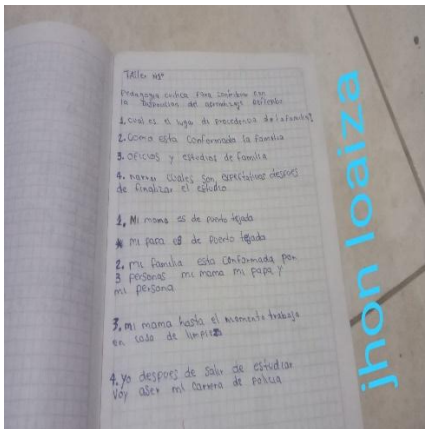 Taller N°
Pedagogia critica Para
la del aprendizaje
1. cual es el lugar de procedencia de la familia?
2. Como esta conformada la familia
3. oficios y estudios de familia
4. narrar cuales son expectativas despues
de finalizar el estudio
1. Mi mama es de puerto tejada
mi papa es de puerto tejada
2. mi familia esta conformada por
3 personas mi mama mi papa y
mi persona
3. mi mama hasta el momento trabaja
en casa de limpiesa
4. yo despues de salir de estudiar
voy aser mi carrera de policia
jhon loaiza